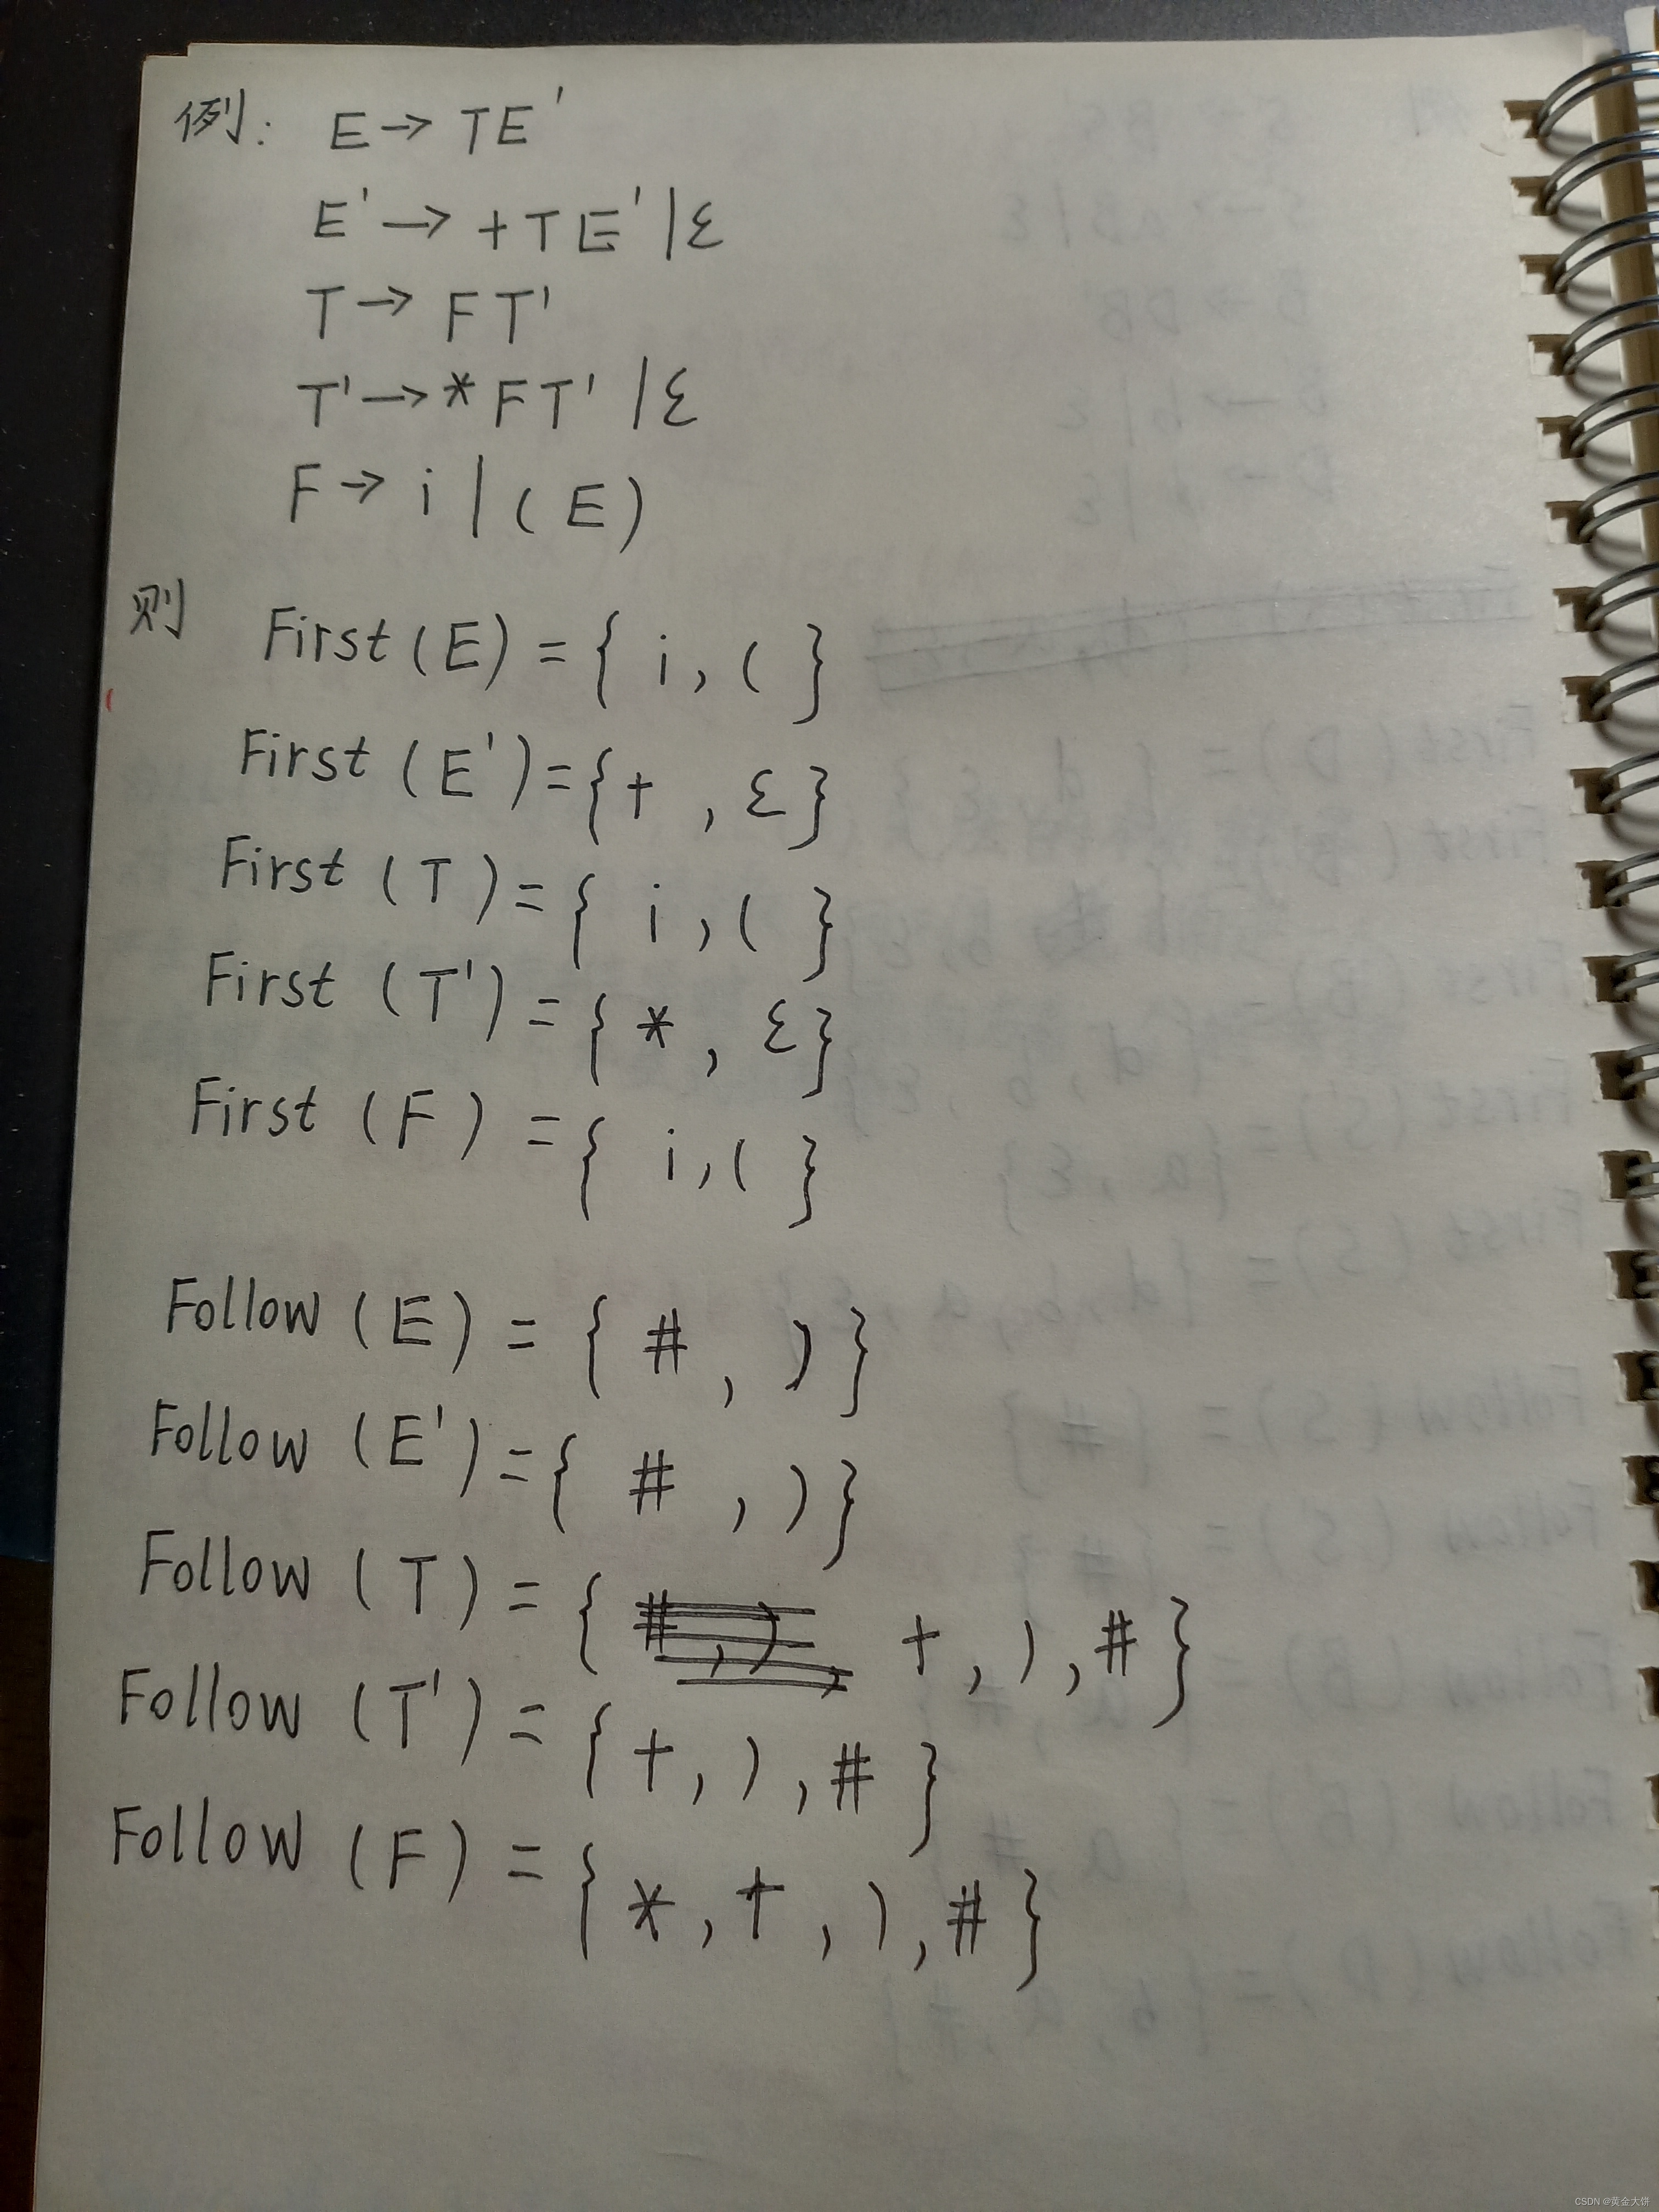 例: E→TE'
E'→+TE'|ε
T→FT'
T'→*FT'|ε
F→i|(E)
则 First(E)={i,(}
First(E')={+,ε}
First(T)={i,(}
First(T')={*,ε}
First(F)={i,(}
Follow(E)={#,)}
Follow(E')={#,)}
Follow(T)={+,),#}
Follow(T')={+,),#}
Follow(F)={*,+,),#}
CSDN @黄金大饼